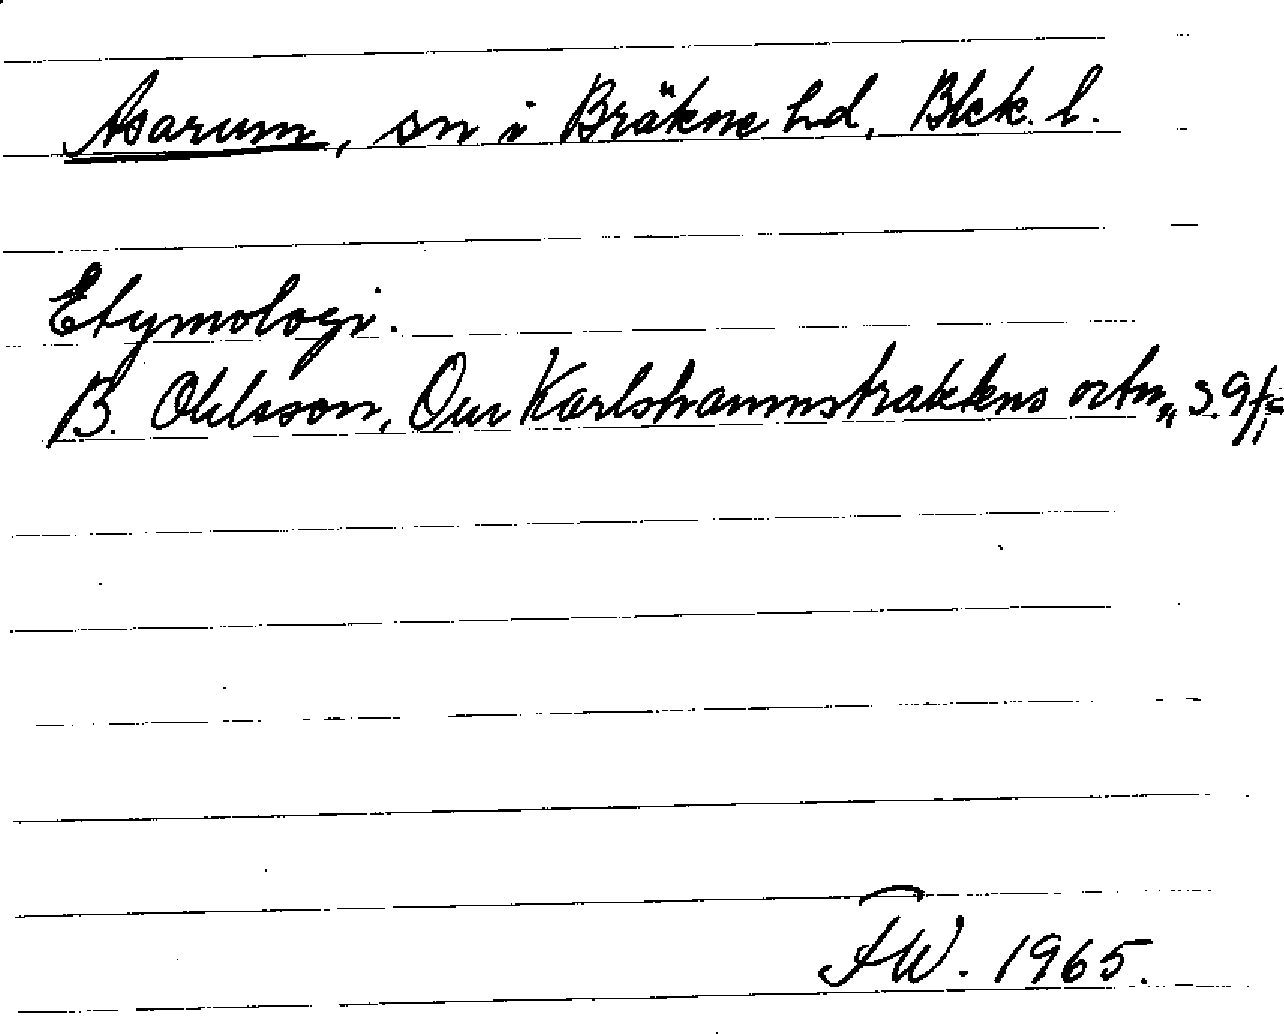 Asarum, sn i Bräkne hd, Blek. l.
Etymologi.
B. Ohlsson, Om Karlshamnstraktens ortn., s. 9 ff.
FW. 1965.